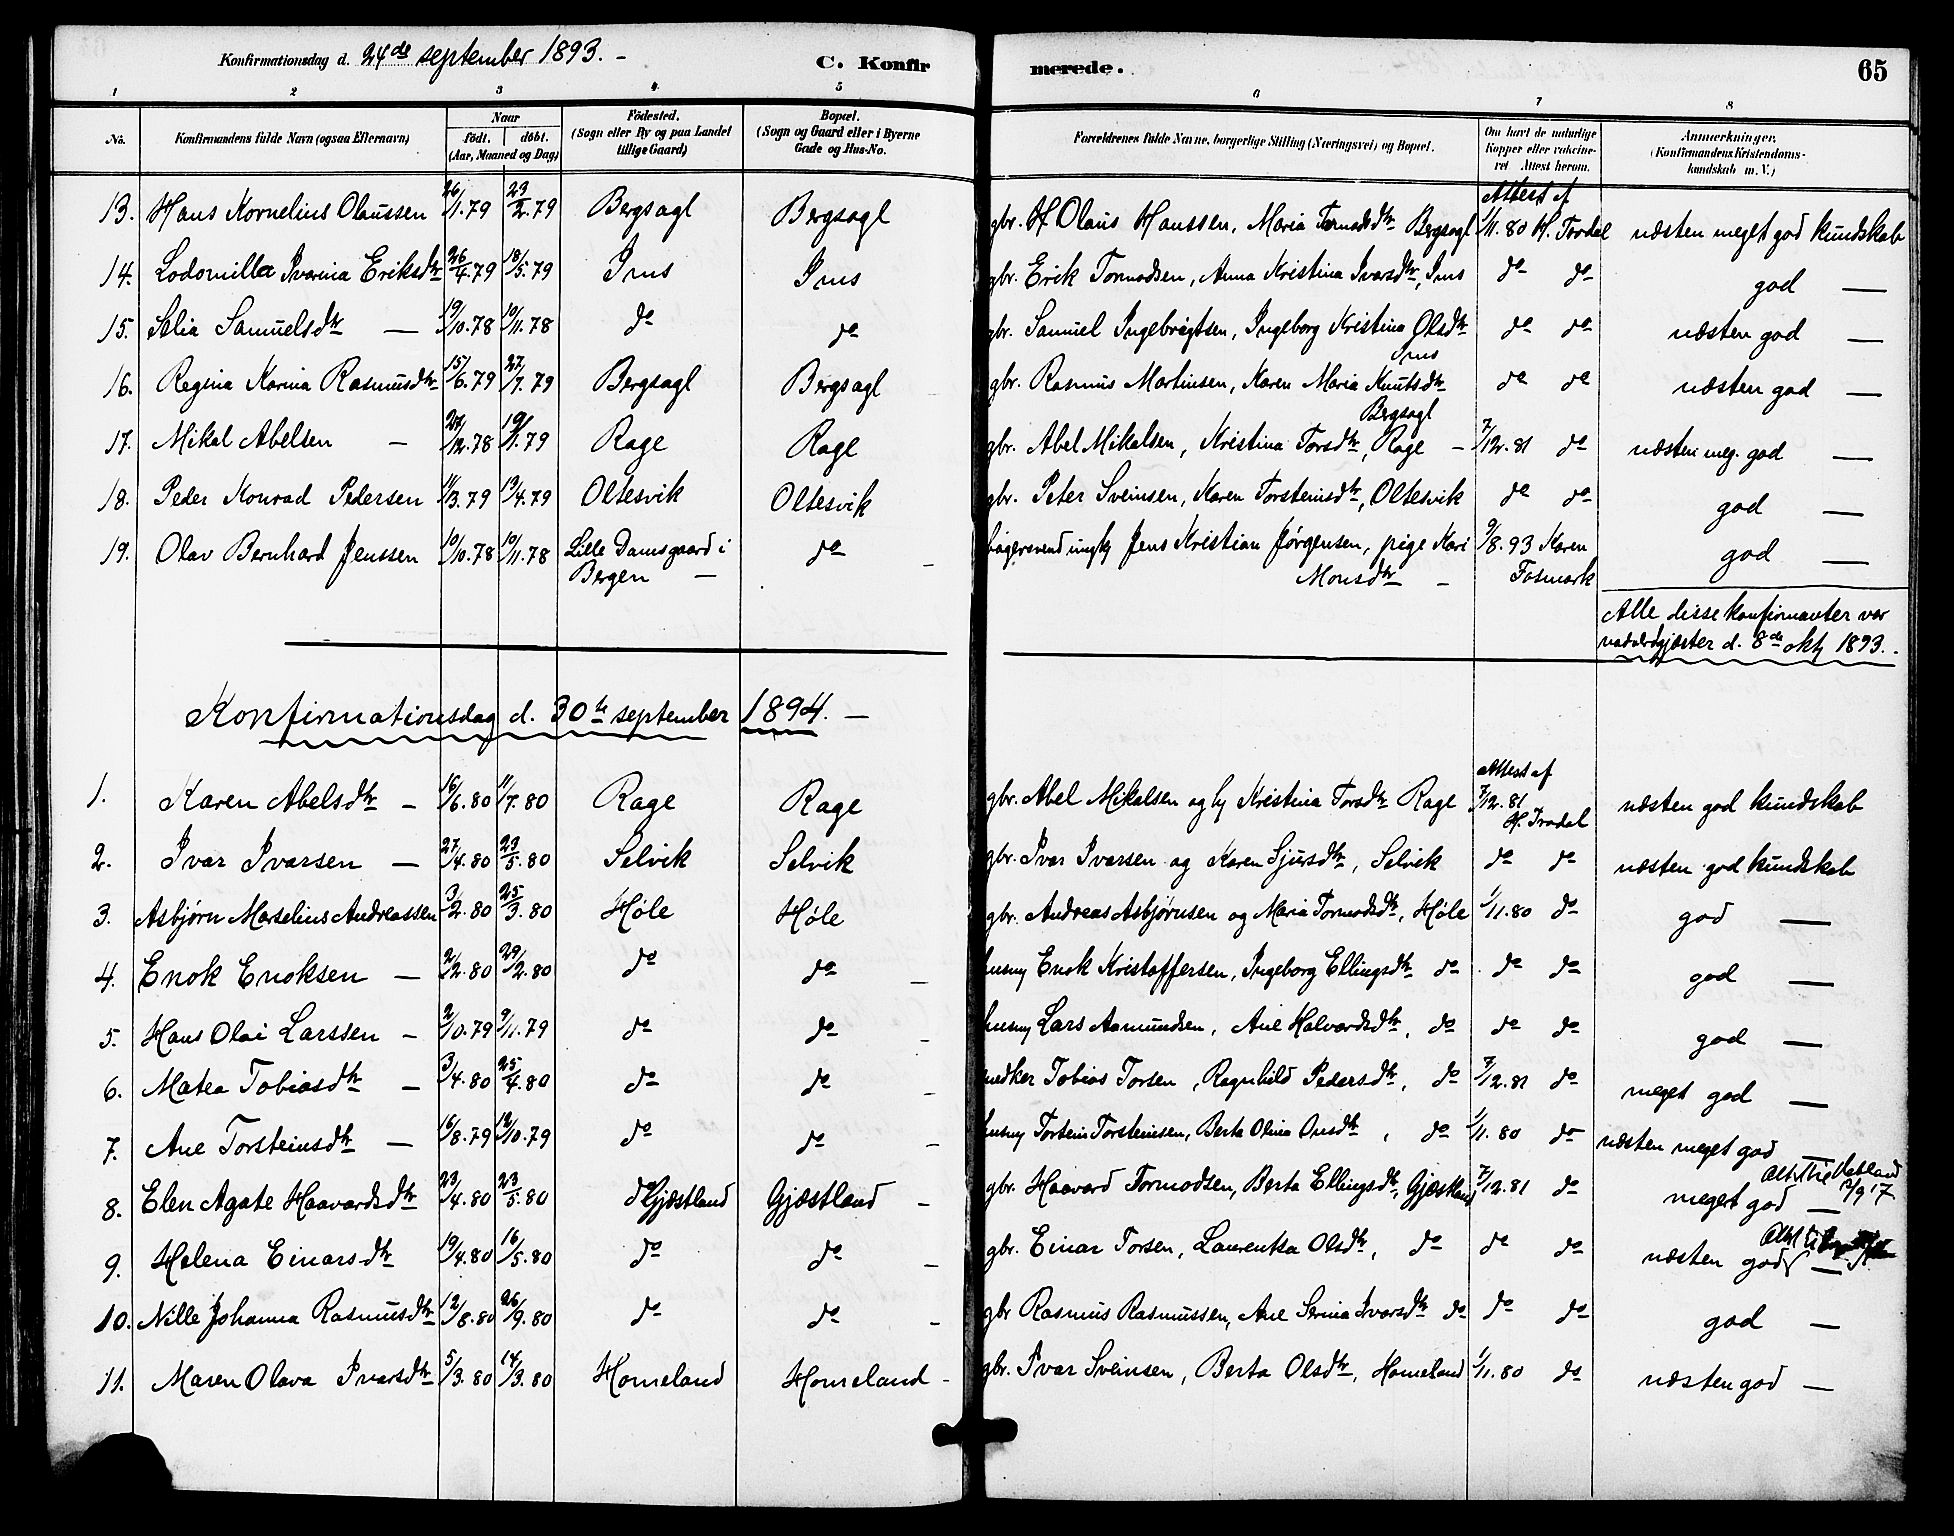 Konfirmationsdag d. 24de september 1893. –
C. Konfirmerede.
65
1 2 3 4 5 6 7 8
No. Konfirmandens fulde Navn (ogsaa Efternavn) Naar født. døbt. (Aar, Maaned og Dag) Fødested. (Sogn eller By og paa Landet tillige Gaard) Bopæl. (Sogn og Gaard eller i Byerne Gade og Hus-No. Forældrenes fulde Navne, borgerlige Stilling (Næringsvei) og Bopæl. Om havt de naturlige Kopper eller vakcineret Attest herom. Anmærkninger. (Konfirmandens Kristendomskundskab m.V.)
13. Hans Kornelius Olaussen 26/1.79 23/2.79 Bergsagl Bergsagl gbr. Olaus Hanssen, Maria Tormodsdtr Bergsagl Attest af 1/11.80 H. Trodal næsten meget god kundskab
14. Lodomilla Ivarina Eriksdtr 26/4.79 18/5.79 Ims Ims gbr. Erik Tormodsen, Anna Kristina Ivarsdtr, Ims do do god —
15. Selia Samuelsdtr — 19/10.78 10/11.78 do do gbr. Samuel Ingebrigtsen, Ingeborg Kristina Olsdtr Ims do do næsten god —
16. Regina Karina Rasmusdtr 15/6.79 27/7.79 Bergsagl Bergsagl gbr. Rasmus Martinsen, Karen Maria Knutsdtr Bergsagl do do næsten god —
17. Mikal Abelsen – 27/12.78 19/1.79 Rage Rage gbr. Abel Mikalsen, Kristina Torsdtr, Rage – 7/12.81 do næsten meg. god —
18. Peder Konrad Pedersen 11/3.79 13/4.79 Oltesvik Oltesvik gbr. Peter Sveinsen, Karen Torsteinsdtr, Oltesvik do do god —
19. Olav Bernhard Jenssen 10/10.78 10/11.78 Lille Damsgaard i Bergen – do – bagersvend ungk Jens Kristian Jørgensen, pige Kari Monsdtr – 9/8.93 Karen Fosmark god —
Alle disse konfirmanter var
nadverdgjæster d. 8de okt 1893.
Konfirmationsdag d. 30te september 1894. —
1. Karen Abelsdtr – 16/6.80 11/7.80 Rage Rage gbr. Abel Mikalsen og h Kristina Torsdtr Rage Attest af 7/12.81 H. Trodal næsten god kundskab
2. Ivar Ivarsen – 27/4.80 23/5.80 Selvik Selvik gbr. Ivar Ivarsen og Karen Sjursdtr, Selvik do do næsten god kundskab
3. Asbjørn Marselius Andreassen 3/2.80 25/3.80 Høle Høle gbr. Andreas Asbjørnsen og Maria Tormodsdtr, Høle 1/11.80 do god —
4. Enok Enoksen – 2/2.80 29/2.80 do do – husmd Enok Kristoffersen, Ingeborg Ellingsdtr do do do god —
5. Hans Olai Larssen – 2/10.79 9/11.79 do do – husmd Lars Aamundsen, Ane Halvardsdtr, do do do god —
6. Matea Tobiasdtr – 3/4.80 25/4.80 do do – snedker Tobias Torsen, Ragnhild Pedersdtr, do 7/12.81 do meget god —
7. Ane Torsteinsdtr – 16/8.79 12/10.79 do do – husmd Tortein Torsteinsen, Berta Olina Onsdtr, do 1/11.80 do næsten meget god —
8. Elen Agate Haavardsdtr 23/4.80 23/5.80 do Gjæstland Gjæstland – gbr. Haavard Tormodsen, Berta Ellingsdtr, Gjæstland 7/12.81 do meget god — 2/9 17
9. Helena Einarsdtr 19/4.80 16/5.80 do do – gbr. Einar Torsen, Laurentsa Olsdtr, do do do næsten god —
10. Nille Johanna Rasmusdtr 12/8.80 26/9.80 do do – gbr Rasmus Rasmussen, Ane Serina Ivarsdtr do do do god —
11. Maren Olava Ivarsdtr 5/3.80 14/3.80 Homeland Homeland – gbr. Ivar Sveinsen, Berta Olsdtr, Homeland 1/11.80 do næsten god —